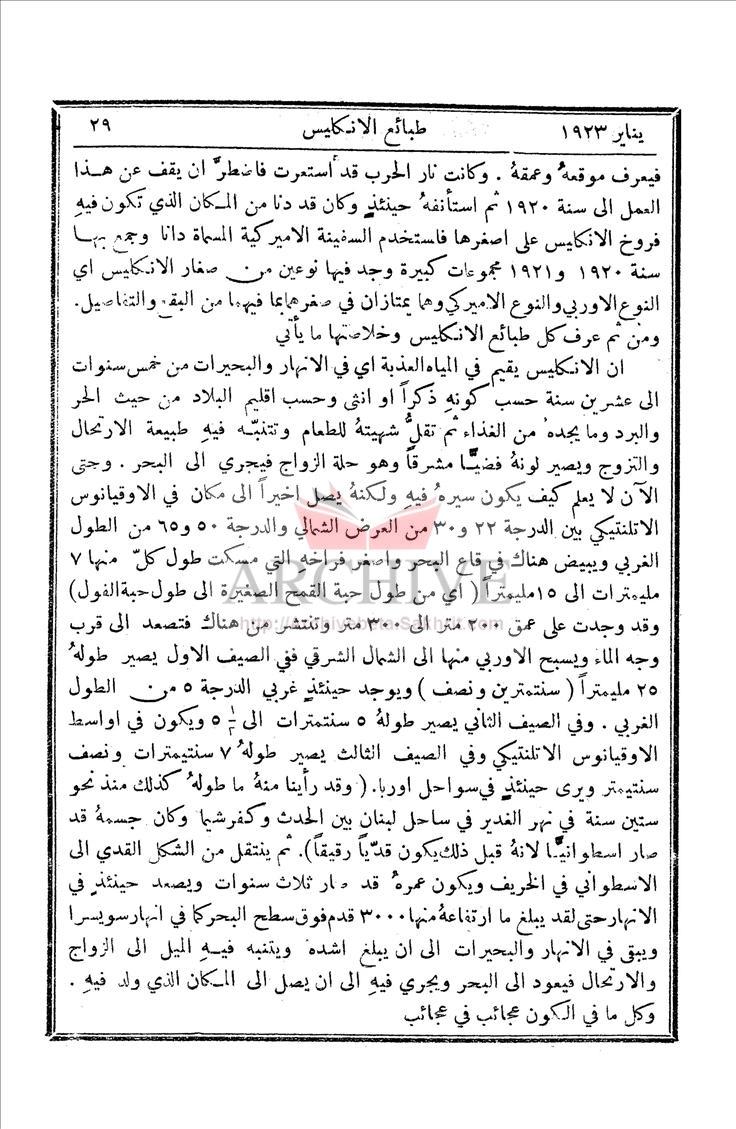 يناير ١٩٢٣ طبائع الانكليس ٢٩
فيعرف موقعهُ وعمقهُ . وكانت نار الحرب قد استعرت فاضطرَّ ان يقف عن هـذا
العمل الى سنة ١٩٢٠ ثم استأنفهُ حينئذٍ وكان قد دنا من المكان الذي تكون فيهِ
فروخ الانكليس على اصغرها فاستخدم السفينة الاميركية المسماة دانا وجمع بهـا
سنة ١٩٢٠ و١٩٢١ مجموعات كبيرة وجد فيها نوعين من صغار الانكليس اي
النوع الاوربي والنوع الاميركي وهما يمتازان في صغرهما بما فيهما من البقع والتفاصيل.
ومن ثم عرف كل طبائع الانكليس وخلاصتها ما يأتي
ان الانكليس يقيم في المياه العذبة اي في الانهار والبحيرات من خمس سنوات
الى عشرين سنة حسب كونهِ ذكراً او انثى وحسب اقليم البلاد من حيث الحر
والبرد وما يجده من الغذاء ثم تقلُّ شهيتهُ للطعام وتتنبّه فيهِ طبيعة الارتحال
والتزوج ويصير لونهُ فضيًّا مشرقاً وهو حلة الزواج فيجري الى البحر . وحتى
الآن لا يعلم كيف يكون سيرهُ فيهِ ولكنهُ يصل اخيراً الى مكان في الاوقيانوس
الاتلنتيكي بين الدرجة ٢٢ و٣٠ من العرض الشمالي والدرجة ٥٠ و٦٥ من الطول
الغربي ويبيض هناك في قاع البحر واصغر فراخهِ التي مسكت طول كلّ منها ٧
مليمترات الى ١٥ مليمتراً ( اي من طول حبة القمح الصغيرة الى طول حبة الفول)
وقد وجدت على عمق ٢٠٠ متر الى ٣٠٠ متر وتنتشر من هناك فتصعد الى قرب
وجه الماء ويسبح الاوربي منها الى الشمال الشرقي ففي الصيف الاول يصير طولهُ
٢٥ مليمتراً ( سنتمترين ونصف ) ويوجد حينئذٍ غربي الدرجة ٥ من الطول
الغربي . وفي الصيف الثاني يصير طولهُ ٥ سنتمترات الى ٥ ويكون في اواسط
الاوقيانوس الاتلنتيكي وفي الصيف الثالث يصير طولهُ ٧ سنتيمترات ونصف
سنتيمتر ويرى حينئذٍ في سواحل اوربا. ( وقد رأينا منهُ ما طولهُ كذلك منذ نحو
ستين سنة في نهر الغدير في ساحل لبنان بين الحدث وكفرشيما وكان جسمهُ قد
صار اسطوانيًّا لانهُ قبل ذلك يكون قدّياً رقيقاً). ثم ينتقل من الشكل القدي الى
الاسطواني في الخريف ويكون عمرهُ قد صار ثلاث سنوات ويصعد حينئذٍ في
الانهار حتى لقد يبلغ ما ارتفاعهُ منها ٣٠٠٠ قدم فوق سطح البحر كما في انهار سويسرا
ويبقى في الانهار والبحيرات الى ان يبلغ اشده ويتنبه فيـهِ الميل الى الزواج
والارتحال فيعود الى البحر ويجري فيهِ الى ان يصل الى المكان الذي ولد فيهِ .
وكل ما في الكون عجائب في عجائب
ARCHIVE
http://Archivebeta.Sakhrit.com